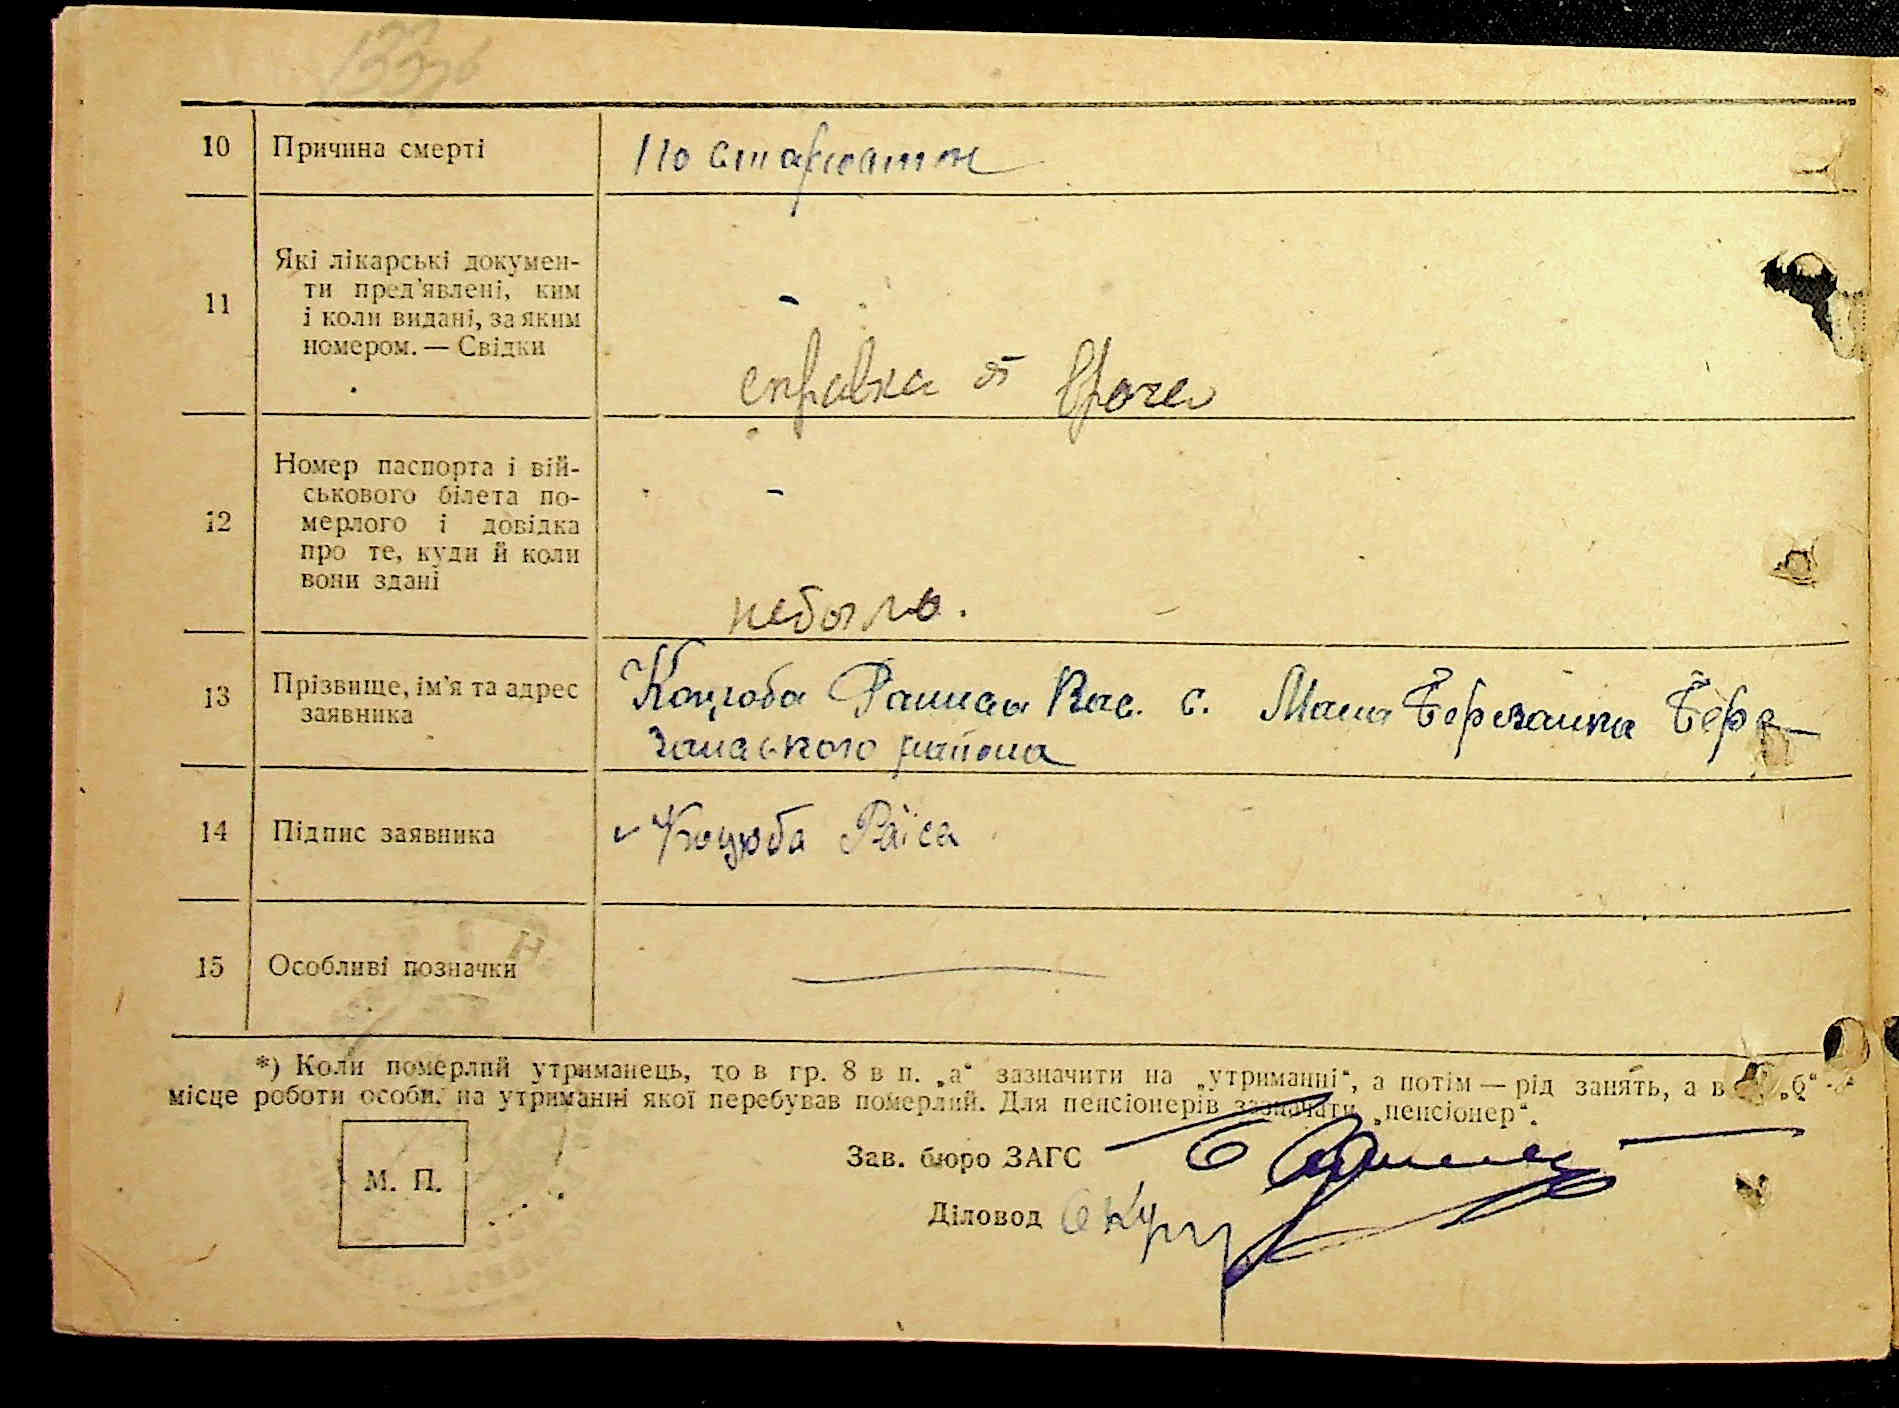 10 Причина смерті По старости
11 Які лікарські докумен-
ти пред'явлені, ким
і коли видані, за яким
номером. — Свідки
справка от врача
12 Номер паспорта і вій-
ськового білета по-
мерлого і довідка
про те, куди й коли
вони здані
небыло.
13 Прізвище, ім'я та адрес Коцюба Раиса Вас. с. Мала Березанка Бере-
заявника
занського района
14 Підпис заявника Коцюба Раїса
15 Особливі позначки
*) Коли померлий утриманець, то в гр. 8 в п. „а“ зазначити на „утриманні“, а потім — рід занять, а в „б“ -
місце роботи особи, на утриманні якої перебував померлий. Для пенсіонерів зазначати „пенсіонер“.
М. П.
Зав. бюро ЗАГС
Діловод